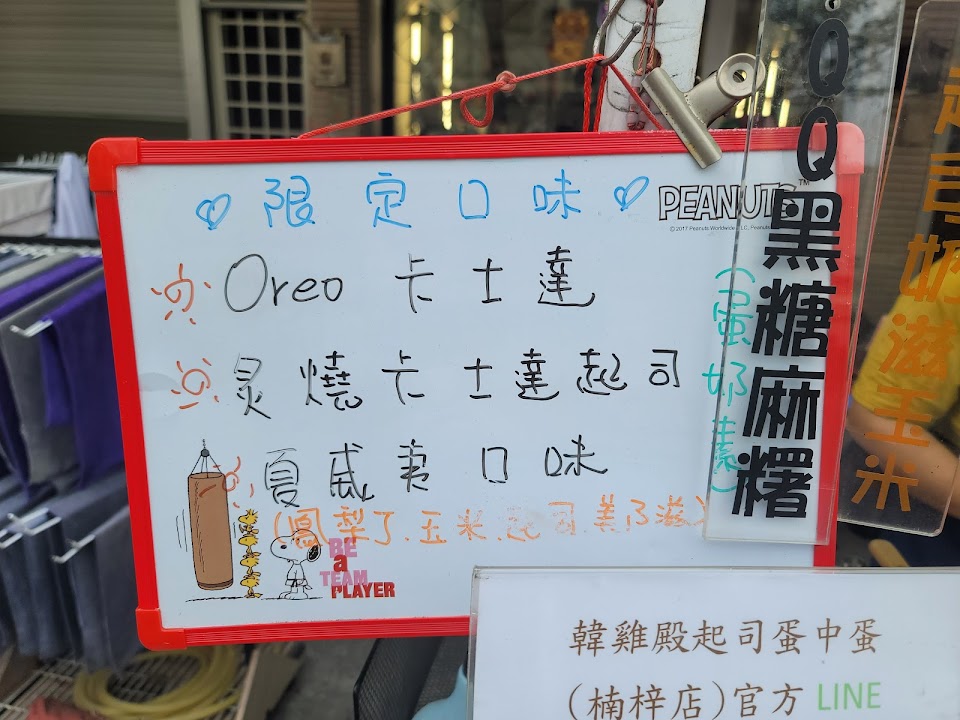 限定口味
PEANUTS
™
© 2017 Peanuts Worldwide
Oreo 卡士達
炙燒卡士達起司
(蛋奶素)
夏威夷口味
(鳳梨丁、玉米、起司、美乃滋)
BE
a
TEAM
PLAYER
QQ黑糖麻糬
起司奶滋玉米
韓雞殿起司蛋中蛋
(楠梓店)官方 LINE